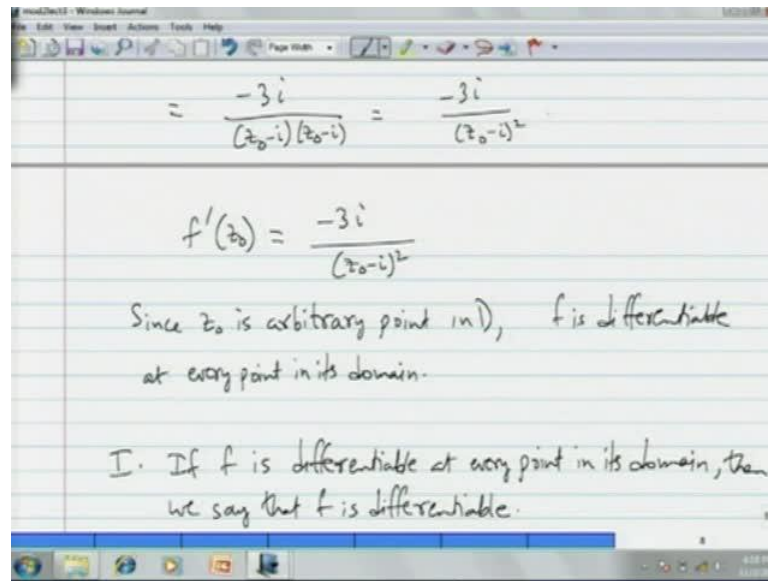 mod2lect3 - Windows Journal
File Edit View Insert Actions Tools Help
Page Width
= -3i / (z₀-i)(z₀-i) = -3i / (z₀-i)²
f'(z₀) = -3i / (z₀-i)²
Since z₀ is arbitrary point in D, f is differentiable
at every point in its domain.
I. If f is differentiable at every point in its domain, then
we say that f is differentiable.
8